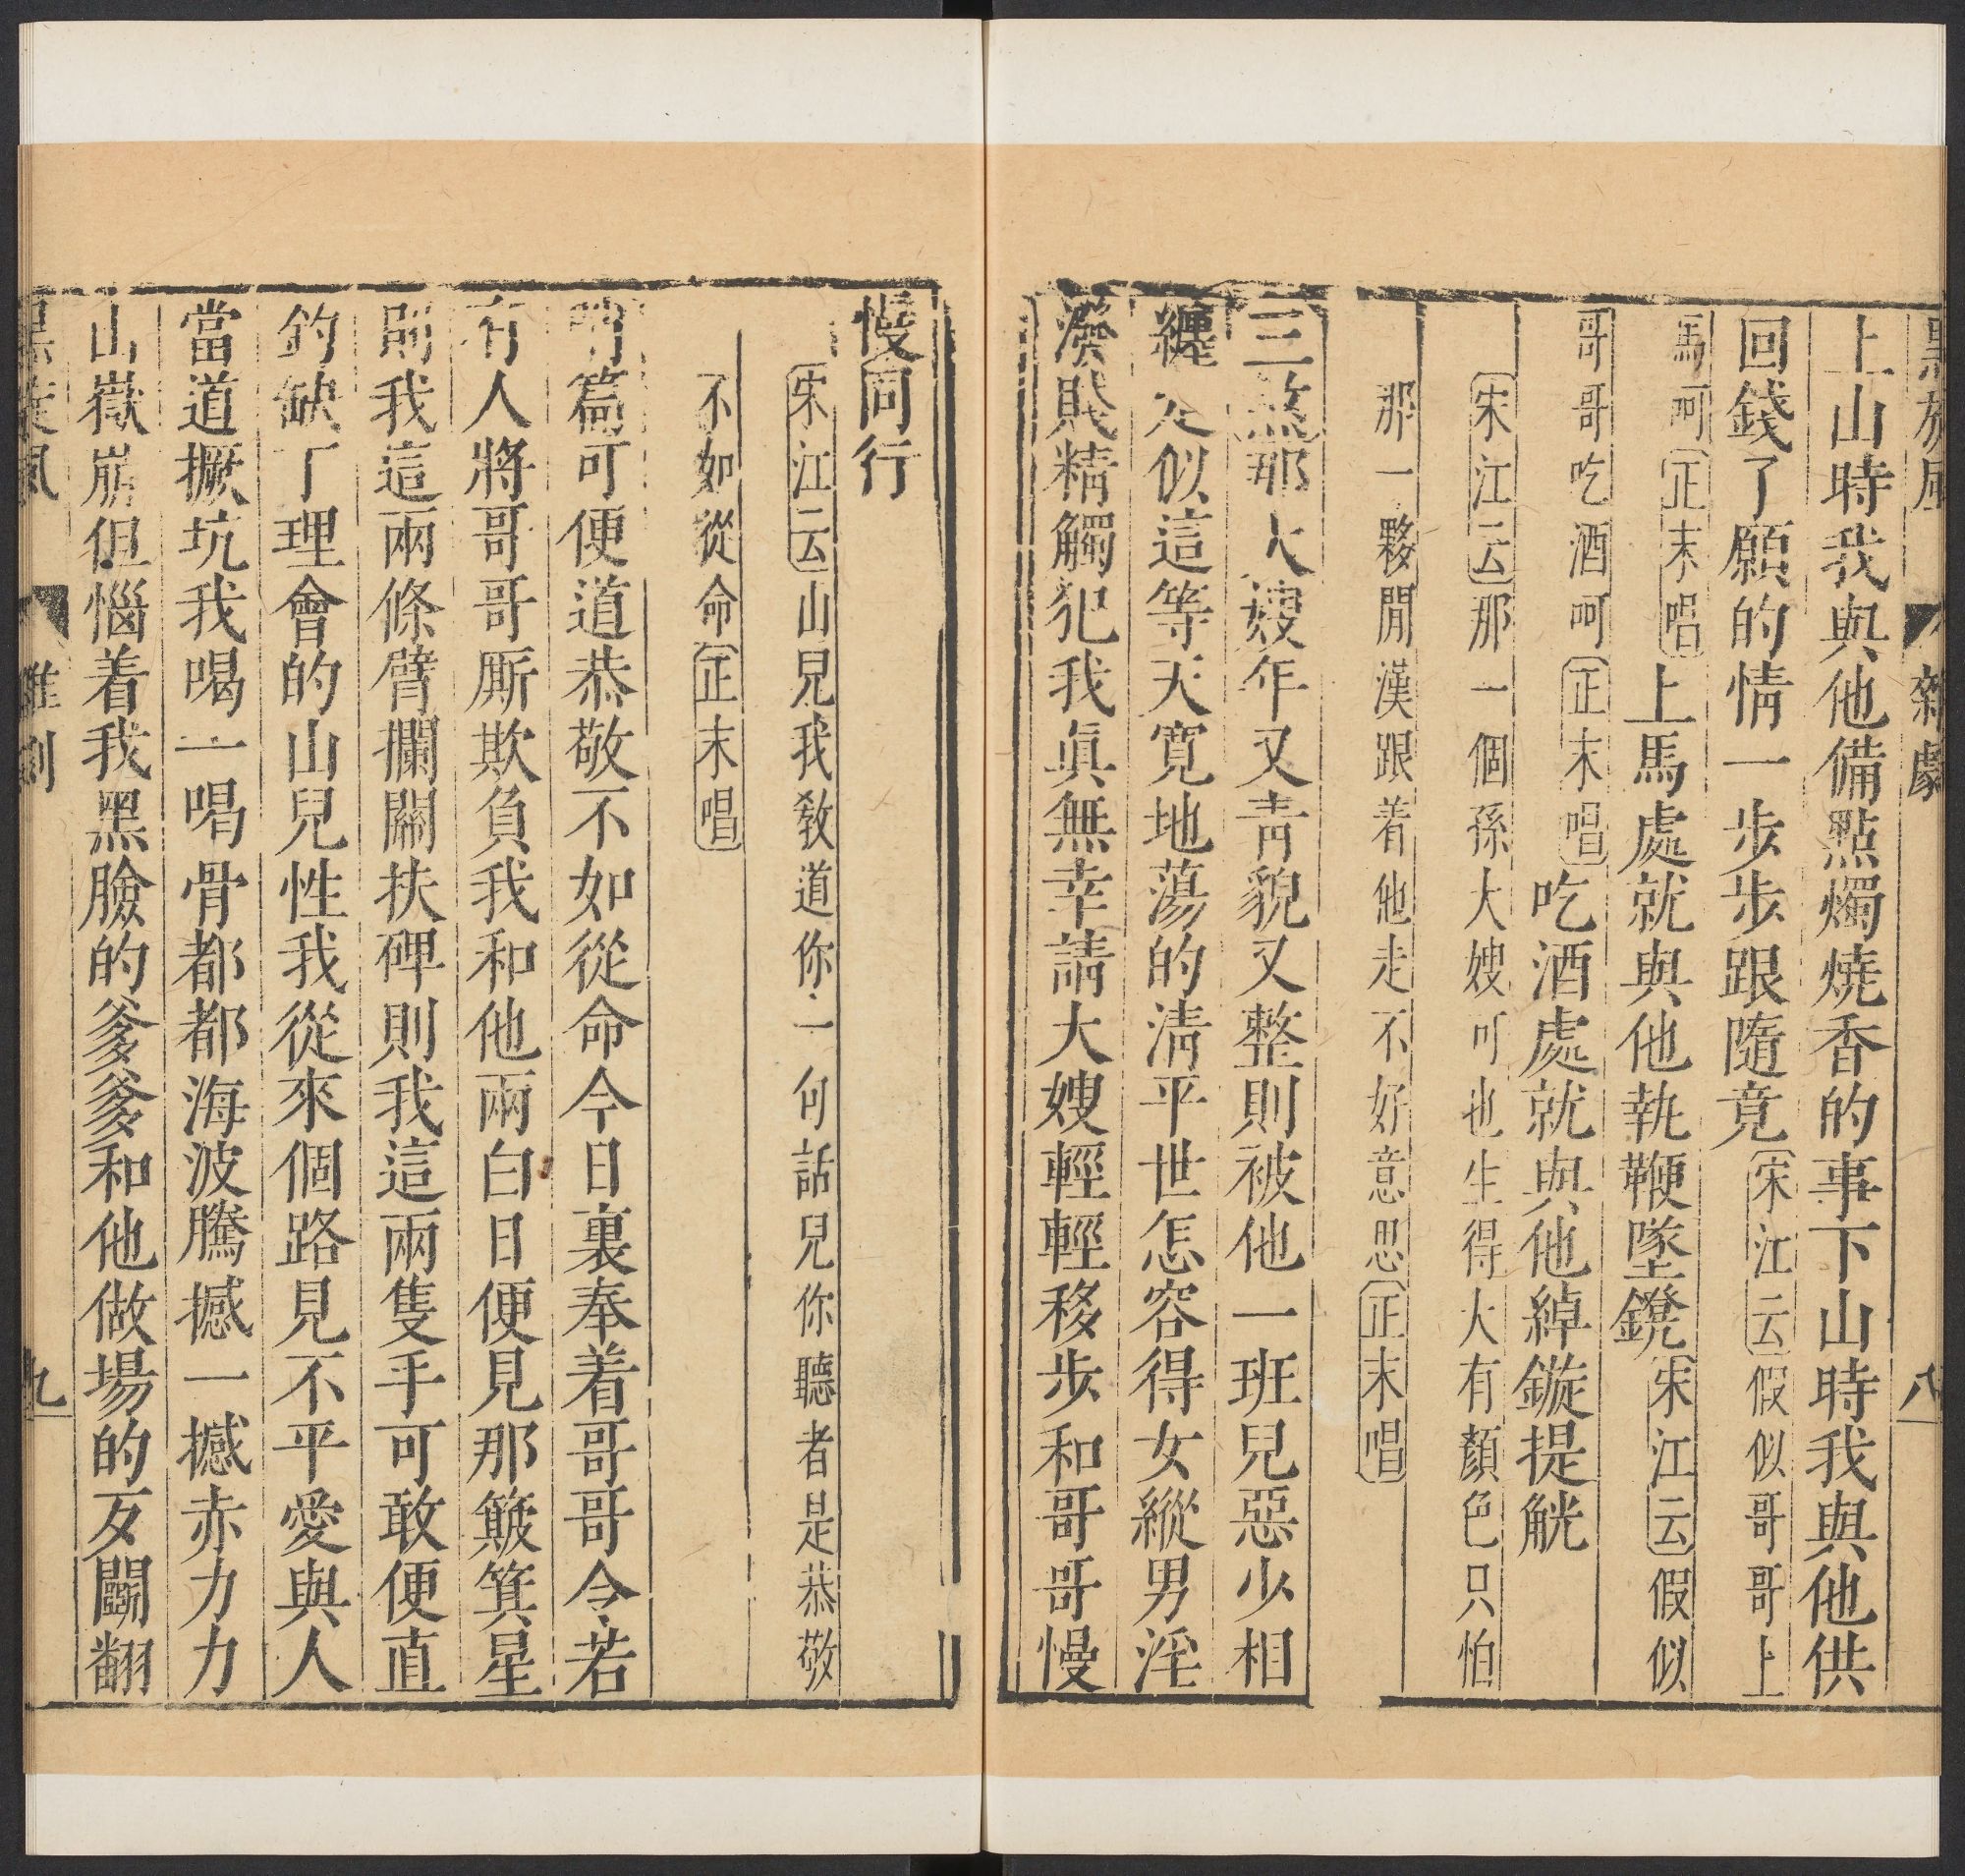 黑旋風 雜劇 八
上山時我與他備點燭燒香的事下山時我與他供
回錢了願的情一步步跟隨竟宋江云假似哥哥上
馬呵正末唱上馬處就與他執鞭墜鐙宋江云假似
哥哥吃酒呵正末唱吃酒處就與他綽鏇提觥
宋江云那一個孫大嫂可也生得大有顏色只怕
那一夥閒漢跟着他走不好意思正末唱
三煞那大嫂年又青貌又整則被他一班兒惡少相
纏 似這等天寬地蕩的清平世怎容得女縱男淫
潑賤精觸犯我眞無幸請大嫂輕輕移步和哥哥慢
慢同行
宋江云山兒我教道你一句話兒你聽者是恭敬
不如從命正末唱
篇可便道恭敬不如從命今日裏奉着哥哥令若
有人將哥哥厮欺負我和他兩白日便見那簸箕星
則我這兩條臂攔關扶碑則我這兩隻手可敢便直
釣缺丁理會的山兒性我從來個路見不平愛與人
當道撅坑我喝一喝骨都都海波騰撼一撼赤力力
山嶽崩但惱着我黑臉的爹爹和他做場的歹鬭翻
黑旋風 雜劇 九